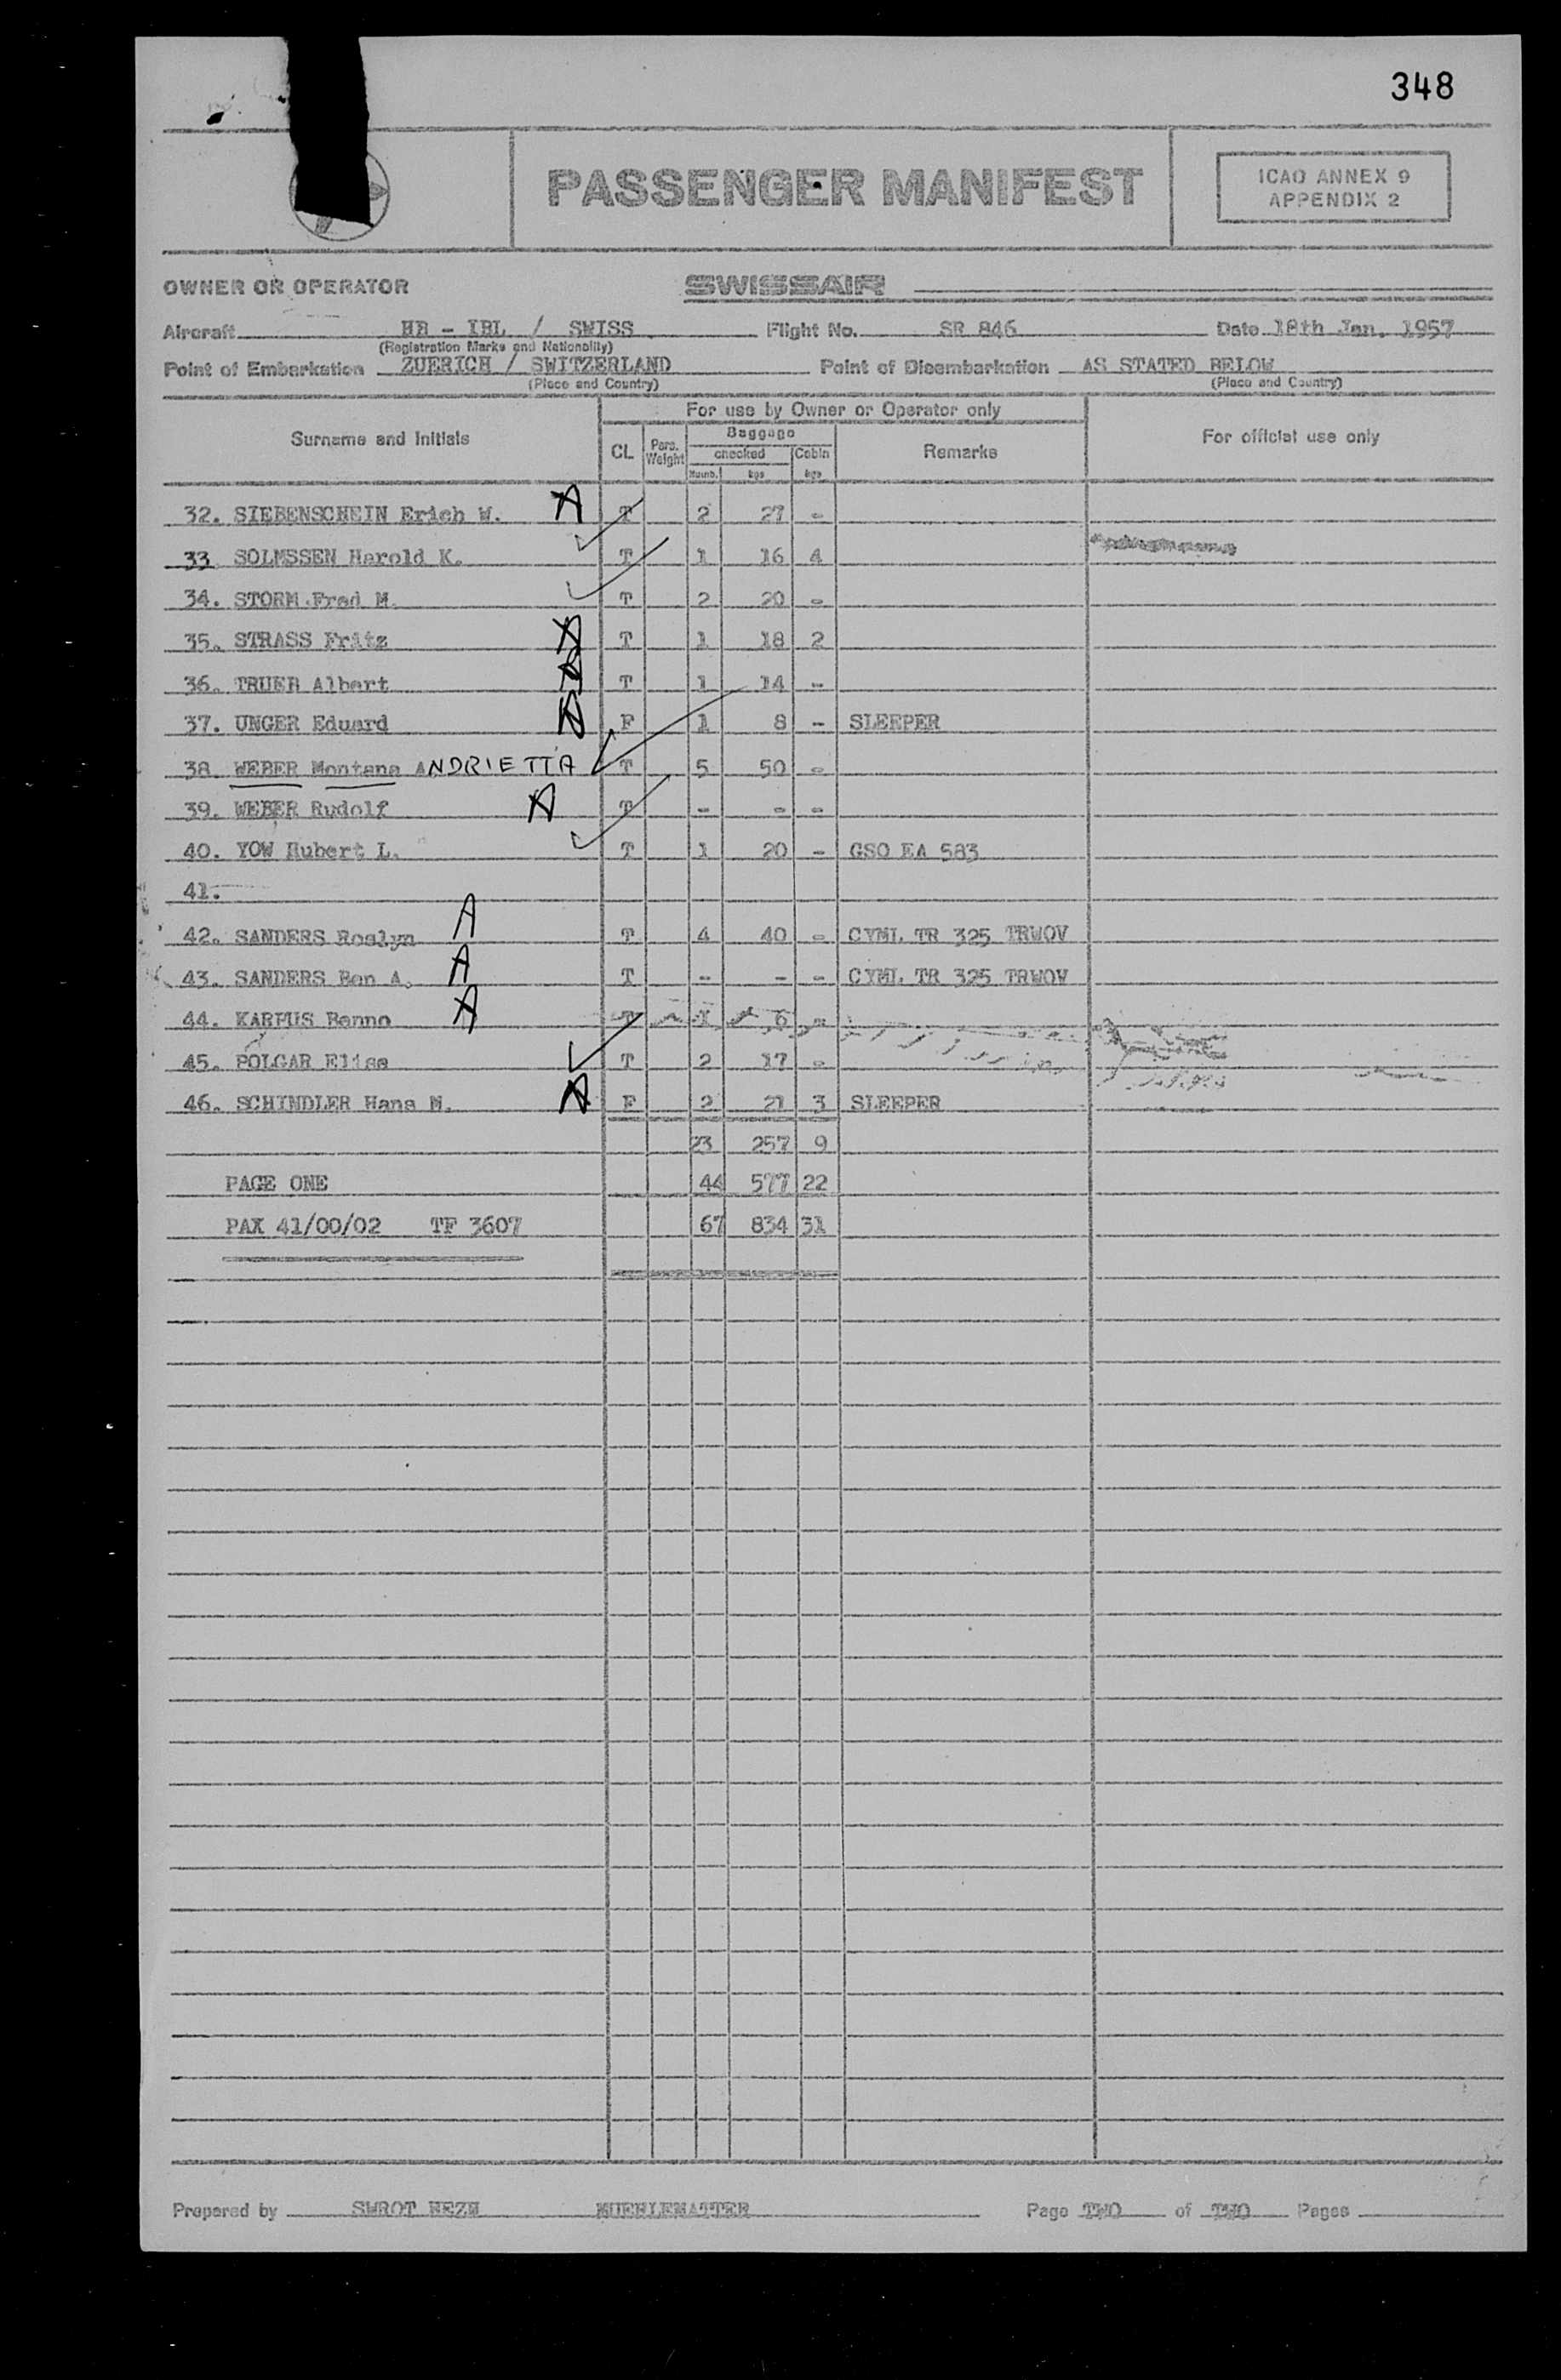 348
PASSENGER MANIFEST
ICAO ANNEX 9
APPENDIX 2
OWNER OR OPERATOR SWISSAIR
Aircraft HB - IBL / SWISS Flight No. SR 846 Date 18th Jan. 1957
(Registration Marks and Nationality)
Point of Embarkation ZUERICH / SWITZERLAND Point of Disembarkation AS STATED BELOW
(Place and Country) (Place and Country)
For use by Owner or Operator only
Surname and Initials CL Pers. Weight Baggage Remarks For official use only
checked Cabin
Numb. kgs kgs
32. SIEBENSCHEIN Erich W. A T 2 27 -
33 SOLMSSEN Harold K. T 1 16 4
34. STORM Fred M. T 2 20 -
35. STRASS Fritz A T 1 18 2
36. TRUEB Albert A T 1 14 -
37. UNGER Eduard F 1 8 - SLEEPER
38 WEBER Montana ANDRIETTA T 5 50 -
39. WEBER Rudolf A T - - -
40. YOW Hubert L. T 1 20 - GSO EA 583
41.
42. SANDERS Roslyn A T 4 40 - CYML TR 325 TRWOV
43. SANDERS Ben A. A T - - - CYML TR 325 TRWOV
44. KARPUS Benno A T 1 6 -
45. POLGAR Elisa T 2 17 -
46. SCHINDLER Hans M. A F 2 21 3 SLEEPER
23 257 9
PAGE ONE 44 577 22
PAX 41/00/02 TF 3607 67 834 31
Prepared by SWROT HEZH MUEHLEMATTER Page TWO of TWO Pages